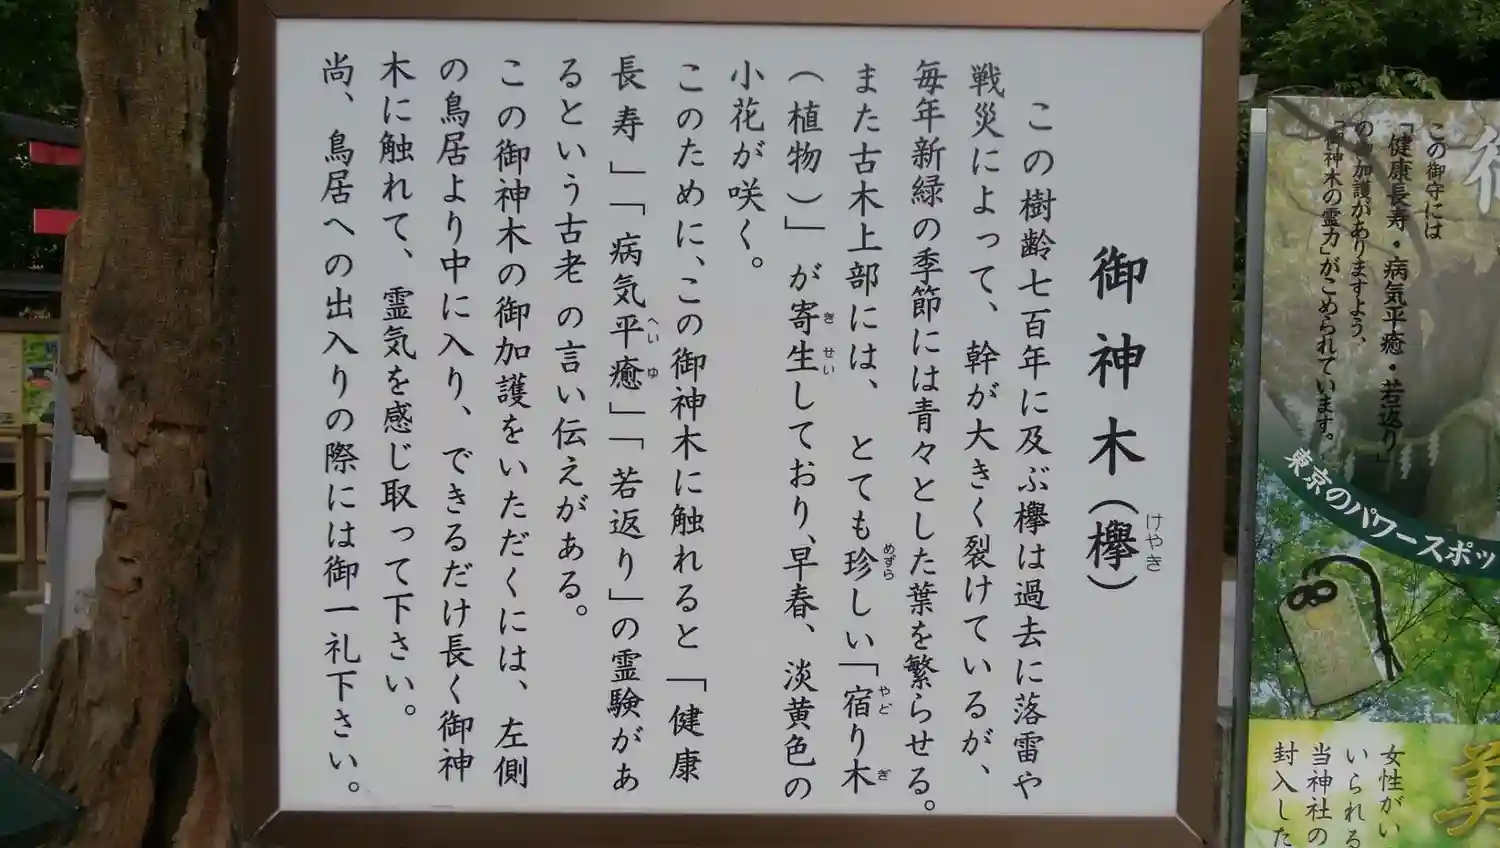 御神木(欅)
けやき
この樹齢七百年に及ぶ欅は過去に落雷や
戦災によって、幹が大きく裂けているが、
毎年新緑の季節には青々とした葉を繁らせる。
また古木上部には、とても珍しい「宿り木
めずら
やど
ぎ
(植物)」が寄生しており、早春、淡黄色の
き
せい
小花が咲く。
このために、この御神木に触れると「健康
長寿」「病気平癒」「若返り」の霊験があ
へい
ゆ
るという古老の言い伝えがある。
この御神木の御加護をいただくには、左側
の鳥居より中に入り、できるだけ長く御神
木に触れて、霊気を感じ取って下さい。
尚、鳥居への出入りの際には御一礼下さい。
この御守には
「健康長寿・病気平癒・若返り」
の御加護がありますよう、
「御神木の霊力」がこめられています。
東京のパワースポッ
美
女性がい
いられる
当神社の
封入した